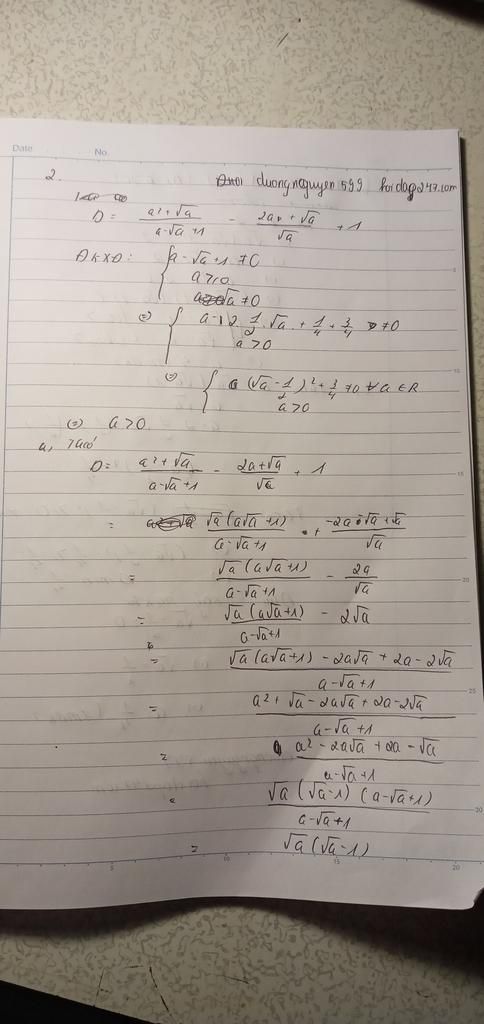 Date No.
2. duongnguyen599 hoidap247.com
D = (a² + √a)/(a - √a + 1) - (2a + √a)/√a + 1
ĐKXĐ: { a - √a + 1 ≠ 0
a ≥ 0
√a ≠ 0
(=) { a - 2. 1/2 . √a + 1/4 + 3/4 ≠ 0
a > 0
(=) { (√a - 1/2)² + 3/4 ≠ 0 ∀ a ∈ R
a > 0
(=) a > 0
a, Ta có
D = (a² + √a)/(a - √a + 1) - (2a + √a)/√a + 1
= √a (a√a + 1)/(a - √a + 1) + (-2a - √a + √a)/√a
= √a (a√a + 1)/(a - √a + 1) - 2a/√a
= √a (a√a + 1)/(a - √a + 1) - 2√a
= (√a (a√a + 1) - 2a√a + 2a - 2√a)/(a - √a + 1)
= (a² + √a - 2a√a + 2a - 2√a)/(a - √a + 1)
= (a² - 2a√a + 2a - √a)/(a - √a + 1)
= √a (√a - 1) (a - √a + 1)/(a - √a + 1)
= √a (√a - 1)
5 10 15 20